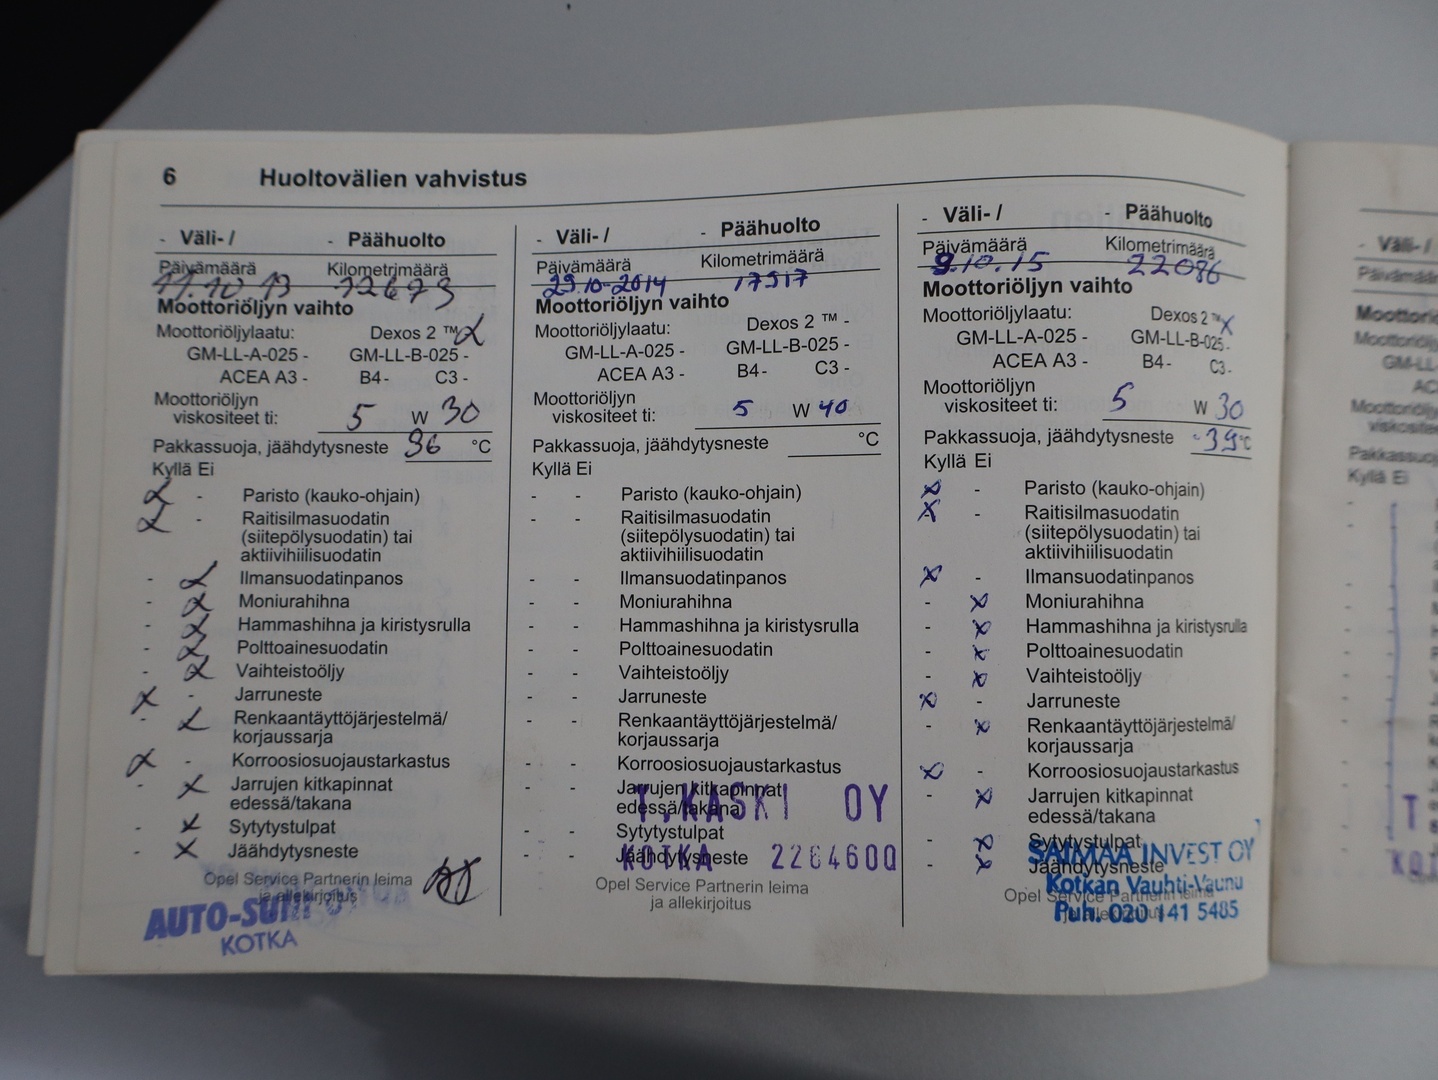 6 Huoltovälien vahvistus
- Väli- / - Päähuolto
Päivämäärä Kilometrimäärä
11.10 13 12673
Moottoriöljyn vaihto
Moottoriöljylaatu: Dexos 2 ™ X
GM-LL-A-025 - GM-LL-B-025 -
ACEA A3 - B4 - C3 -
Moottoriöljyn
viskositeet ti: 5 W 30
Pakkassuoja, jäähdytysneste 36 °C
Kyllä Ei
X - Paristo (kauko-ohjain)
X - Raitisilmasuodatin
(siitepölysuodatin) tai
aktiivihiilisuodatin
- X Ilmansuodatinpanos
- X Moniurahihna
- X Hammashihna ja kiristysrulla
- X Polttoainesuodatin
- X Vaihteistoöljy
X - Jarruneste
- X Renkaantäyttöjärjestelmä/
korjaussarja
X - Korroosiosuojaustarkastus
- X Jarrujen kitkapinnat
edessä/takana
- X Sytytystulpat
- X Jäähdytysneste
Opel Service Partnerin leima
ja allekirjoitus
KOTKA
- Väli- / - Päähuolto
Päivämäärä Kilometrimäärä
29.10-2014 17917
Moottoriöljyn vaihto
Moottoriöljylaatu: Dexos 2 ™ -
GM-LL-A-025 - GM-LL-B-025 -
ACEA A3 - B4 - C3 -
Moottoriöljyn
viskositeet ti: 5 W 40
Pakkassuoja, jäähdytysneste °C
Kyllä Ei
- - Paristo (kauko-ohjain)
- - Raitisilmasuodatin
(siitepölysuodatin) tai
aktiivihiilisuodatin
- - Ilmansuodatinpanos
- - Moniurahihna
- - Hammashihna ja kiristysrulla
- - Polttoainesuodatin
- - Vaihteistoöljy
- - Jarruneste
- - Renkaantäyttöjärjestelmä/
korjaussarja
- - Korroosiosuojaustarkastus
- - Jarrujen kitkapinnat
edessä/takana
T.KASKI OY
- - Sytytystulpat
- - Jäähdytysneste
KOTKA 2284600
Opel Service Partnerin leima
ja allekirjoitus
- Väli- / - Päähuolto
Päivämäärä Kilometrimäärä
9.10.15 22086
Moottoriöljyn vaihto
Moottoriöljylaatu: Dexos 2 ™ X
GM-LL-A-025 - GM-LL-B-025 -
ACEA A3 - B4 - C3 -
Moottoriöljyn
viskositeet ti: 5 W 30
Pakkassuoja, jäähdytysneste -39 °C
Kyllä Ei
X - Paristo (kauko-ohjain)
X - Raitisilmasuodatin
(siitepölysuodatin) tai
aktiivihiilisuodatin
X - Ilmansuodatinpanos
- X Moniurahihna
- X Hammashihna ja kiristysrulla
- X Polttoainesuodatin
- X Vaihteistoöljy
X - Jarruneste
- X Renkaantäyttöjärjestelmä/
korjaussarja
X - Korroosiosuojaustarkastus
- X Jarrujen kitkapinnat
edessä/takana
- X Sytytystulpat
SAIMAA INVEST OY
- X Jäähdytysneste
Kotkan Vauhti-Vaunu
Opel Service Partnerin leima
ja allekirjoitus
Puh. 020 141 5485